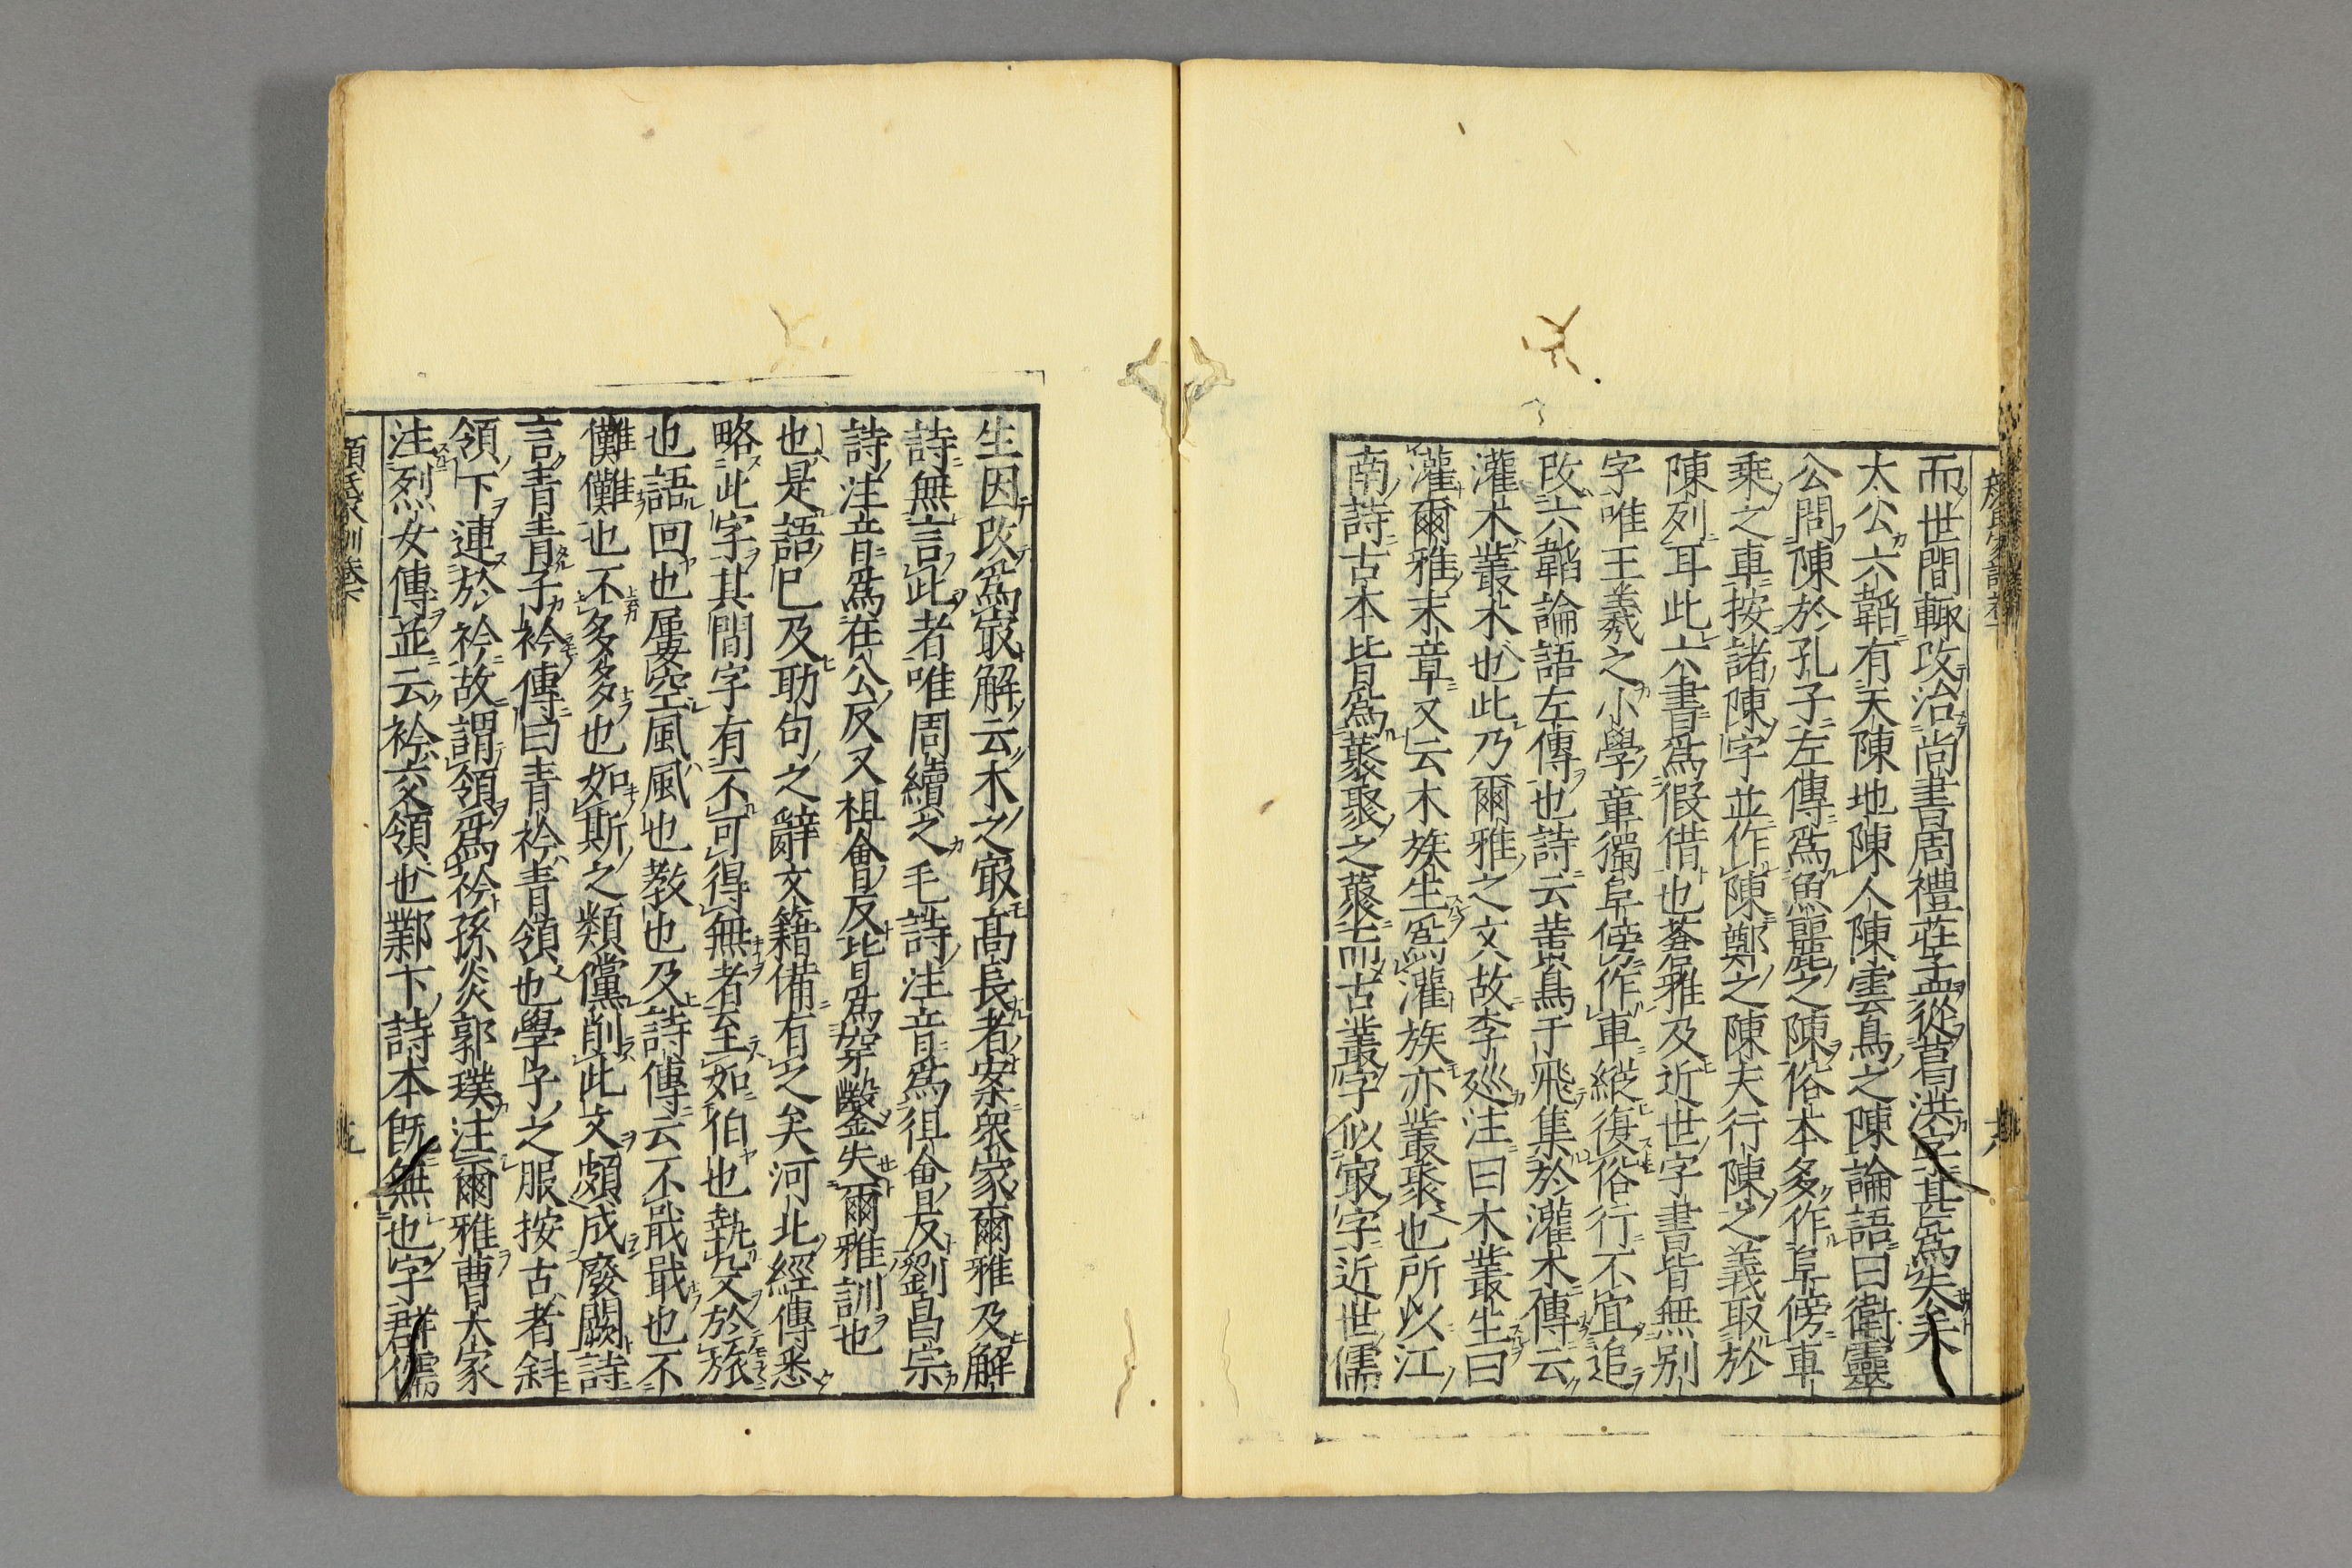 而世間輒改治尚書周禮莊孟從葛洪字甚爲失矣
太公六韜有天陳地陳人陳雲鳥之陳論語曰衛靈
公問陳於孔子左傳爲魚麗之陳俗本多作阜傍車
乘之車按諸陳字並作陳鄭之陳夫行陳之義取於
陳列耳此六書爲假借也蒼雅及近世字書皆無别
字唯王羲之小學章獨阜傍作車縱復俗行不宜追
改六韜論語左傳也詩云黄鳥于飛集於灌木傳云
灌木叢木也此乃爾雅之文故李巡注曰木叢生曰
灌爾雅末章又云木族生爲灌族亦叢聚也所以江
南詩古本皆爲藂聚之藂而古叢字似㝡字近世儒
生因改爲㝡解云木之㝡髙長者案衆家爾雅及解
詩無言此者唯周續之毛詩注音爲徂會反劉昌宗
詩注音爲在公反又祖會反皆爲穿鑿失爾雅訓也
也是語已及助句之辭文籍備有之矣河北經傳悉
略此字其間字有不可得無者至如伯也執殳於旅
也語回也屢空風風也教也及詩傳云不戢戢也不
儺儺也不多多也如斯之類儻削此文頗成廢闕詩
言青青子衿傳曰青衿青領也學子之服按古者斜
領下連於衿故謂領爲衿孫炎郭璞注爾雅曹大家
注列女傳並云衿交領也鄴下詩本旣無也字群儒
顔氏家訓卷下